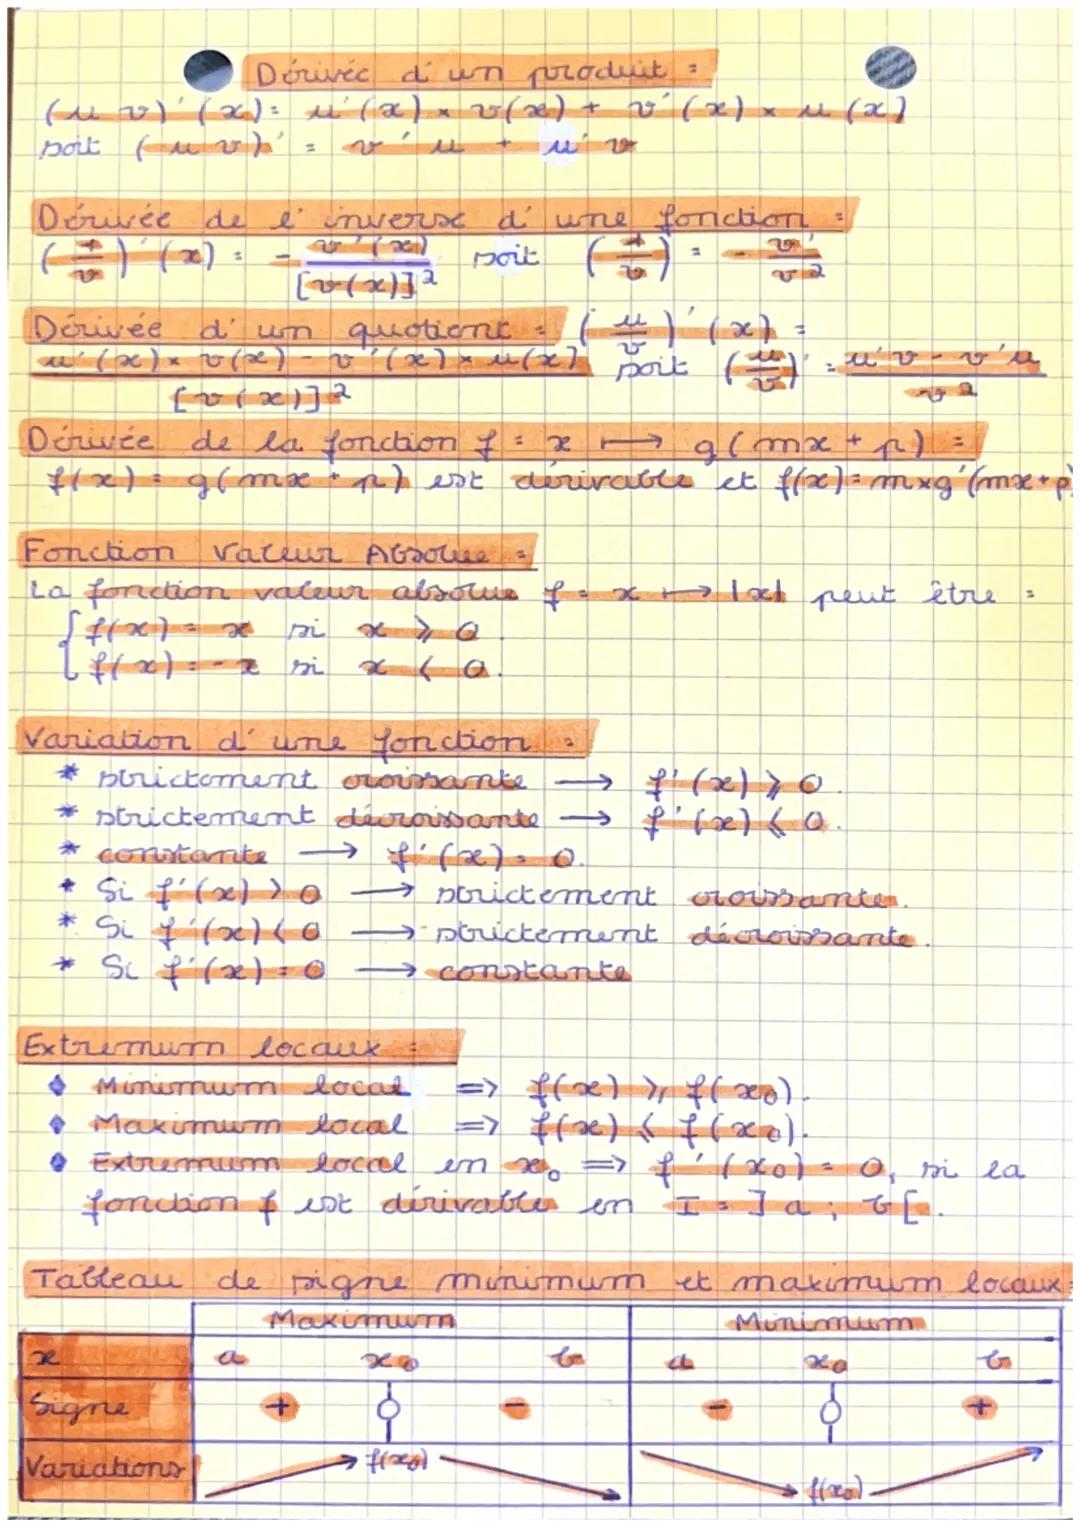 Dérivée d'un produit :
(u v)'(x) = u'(x) × v(x) + v'(x) × u(x)
soit (u v)' = v' u + u' v
Dérivée de l'inverse d'une fonction :
(1/v)'(x) = - v'(x) / [v(x)]² soit (1/v)' = - v' / v²
Dérivée d'un quotient : (u/v)'(x) =
u'(x) × v(x) - v'(x) × u(x) / [v(x)]² soit (u/v)' = u'v - v'u / v²
Dérivée de la fonction f : x ⟼ g(mx + p) :
f(x) = g(mx + p) est dérivable et f(x) = m×g'(mx+p)
Fonction Valeur Absolue :
La fonction valeur absolue f : x ⟼ |x| peut être :
{ f(x) = x si x ⩾ 0.
{ f(x) = - x si x < 0.
Variation d'une fonction :
* strictement croissante → f'(x) ⩾ 0.
* strictement décroissante → f'(x) ⩽ 0.
* constante → f'(x) = 0.
* Si f'(x) > 0 → strictement croissante.
* Si f'(x) < 0 → strictement décroissante.
* Si f'(x) = 0 → constante
Extremum locaux :
◆ Minimum local => f(x) ⩾ f(x₀).
◆ Maximum local => f(x) ⩽ f(x₀).
◆ Extremum local en x₀ => f'(x₀) = 0, si la
fonction f est dérivable en I = ]a ; b[.
Tableau de signe minimum et maximum locaux :
Maximum Minimum
x a x₀ b a x₀ b
Signe + 0 - - 0 +
Variations f(x₀) f(x₀)